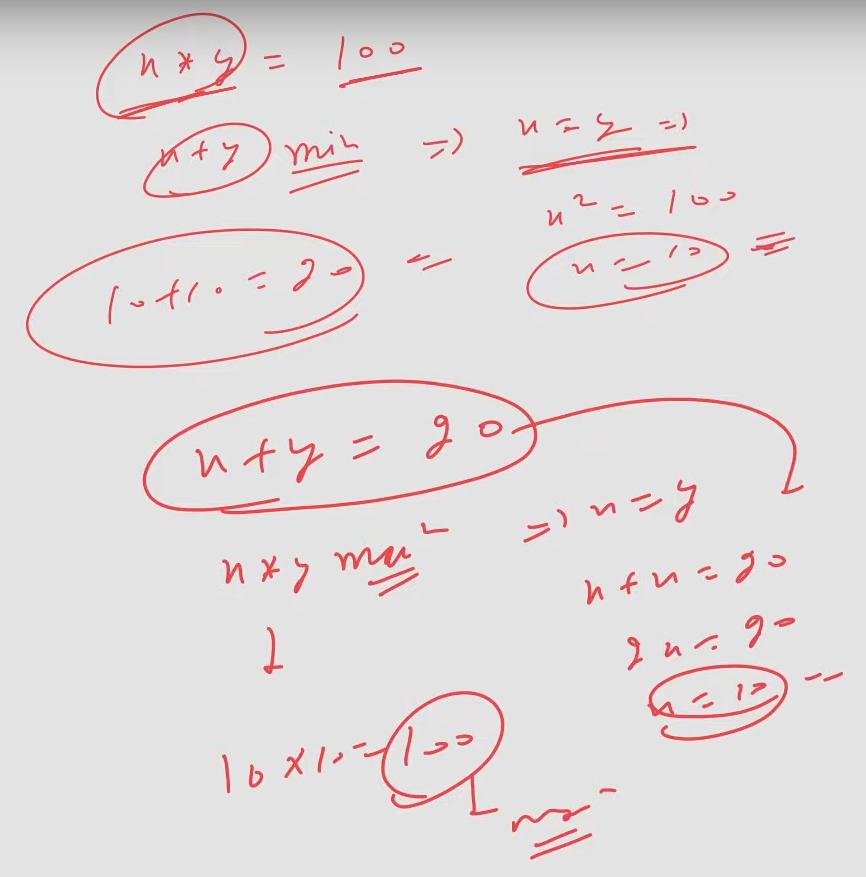 x * y = 100
x + y min => x = y =>
x² = 100
10 + 10 = 20 x = 10
x + y = 20
x * y max => x = y
x + x = 20
2x = 20
x = 10
10 × 10 = 100
max